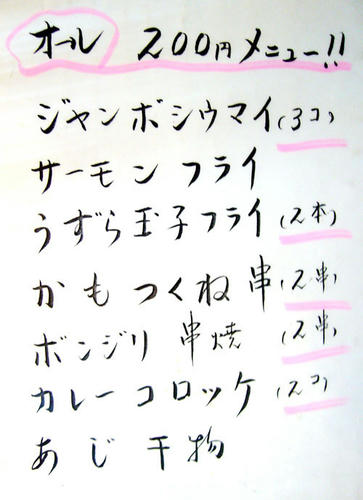 オール 200円メニュー!!
ジャンボシウマイ(3コ)
サーモンフライ
うずら玉子フライ(2本)
かもつくね串(2串)
ボンジリ 串焼(2串)
カレーコロッケ(2コ)
あじ干物